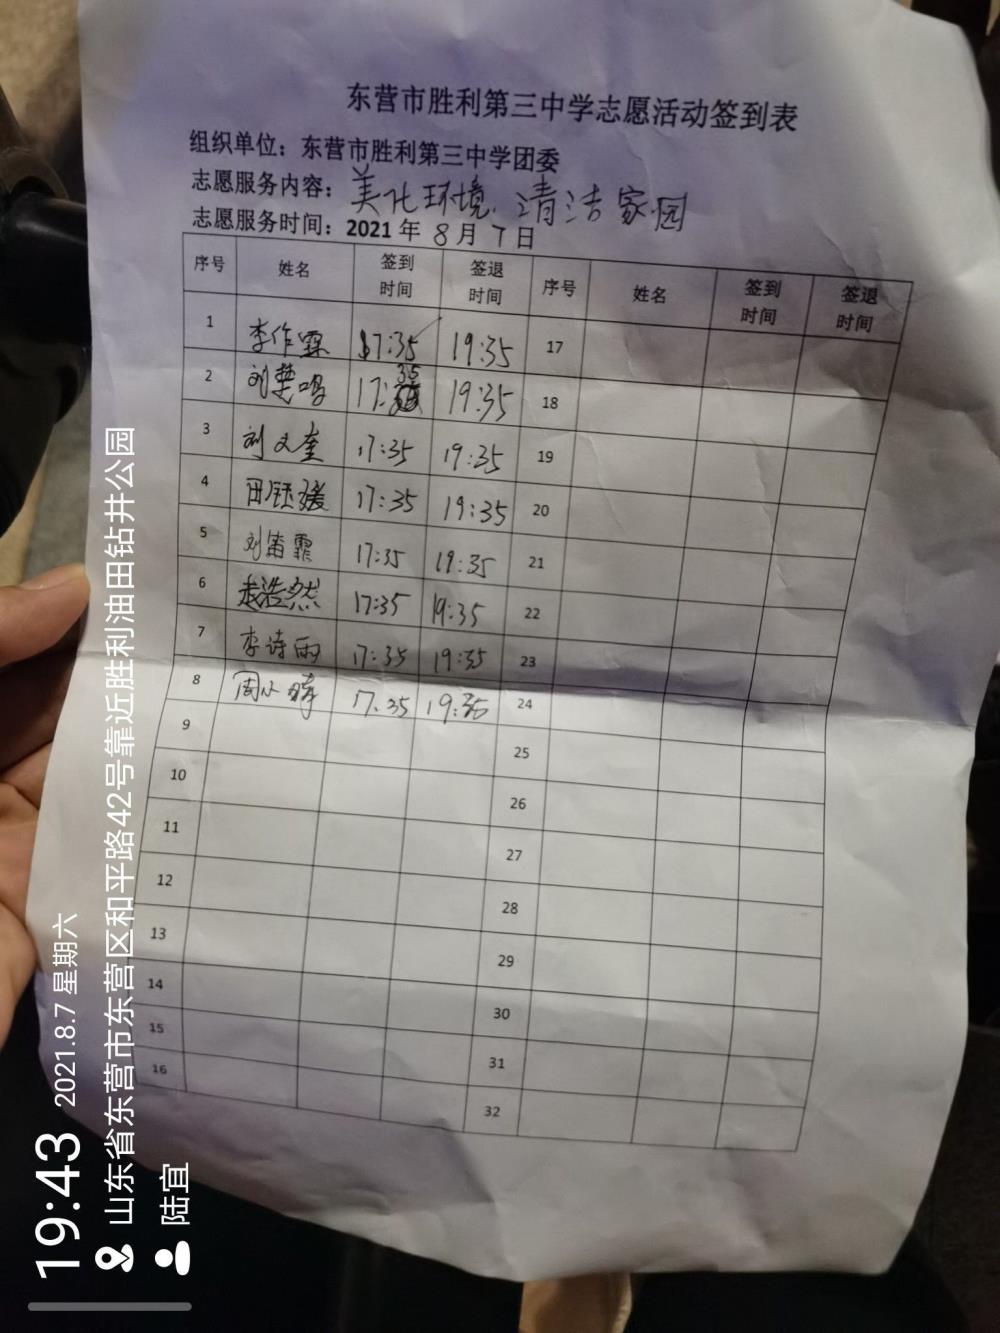 东营市胜利第三中学志愿活动签到表
组织单位：东营市胜利第三中学团委
志愿服务内容：美化环境、清洁家园
志愿服务时间：2021 年 8 月 7 日
序号 姓名 签到时间 签退时间 序号 姓名 签到时间 签退时间
1 李作霖 17:35 19:35 17
2 刘楚鸣 17:35 19:35 18
3 刘文奎 17:35 19:35 19
4 田钰瑗 17:35 19:35 20
5 刘 霏 17:35 19:35 21
6 浩然 17:35 19:35 22
7 李诗雨 17:35 19:35 23
8 周小晴 17:35 19:35 24
9 25
10 26
11 27
12 28
13 29
14 30
15 31
16 32
19:43 2021.8.7 星期六
山东省东营市东营区和平路42号靠近胜利油田钻井公园
陆宜